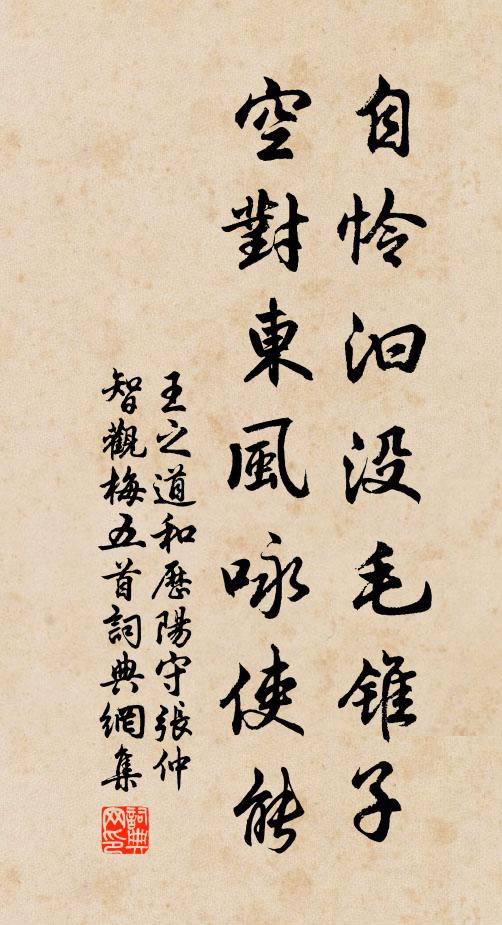 自怜汩没毛锥子
空對東風咏使能
王之道和歷陽守張仲
智觀梅五首詞典網集
詞典网印